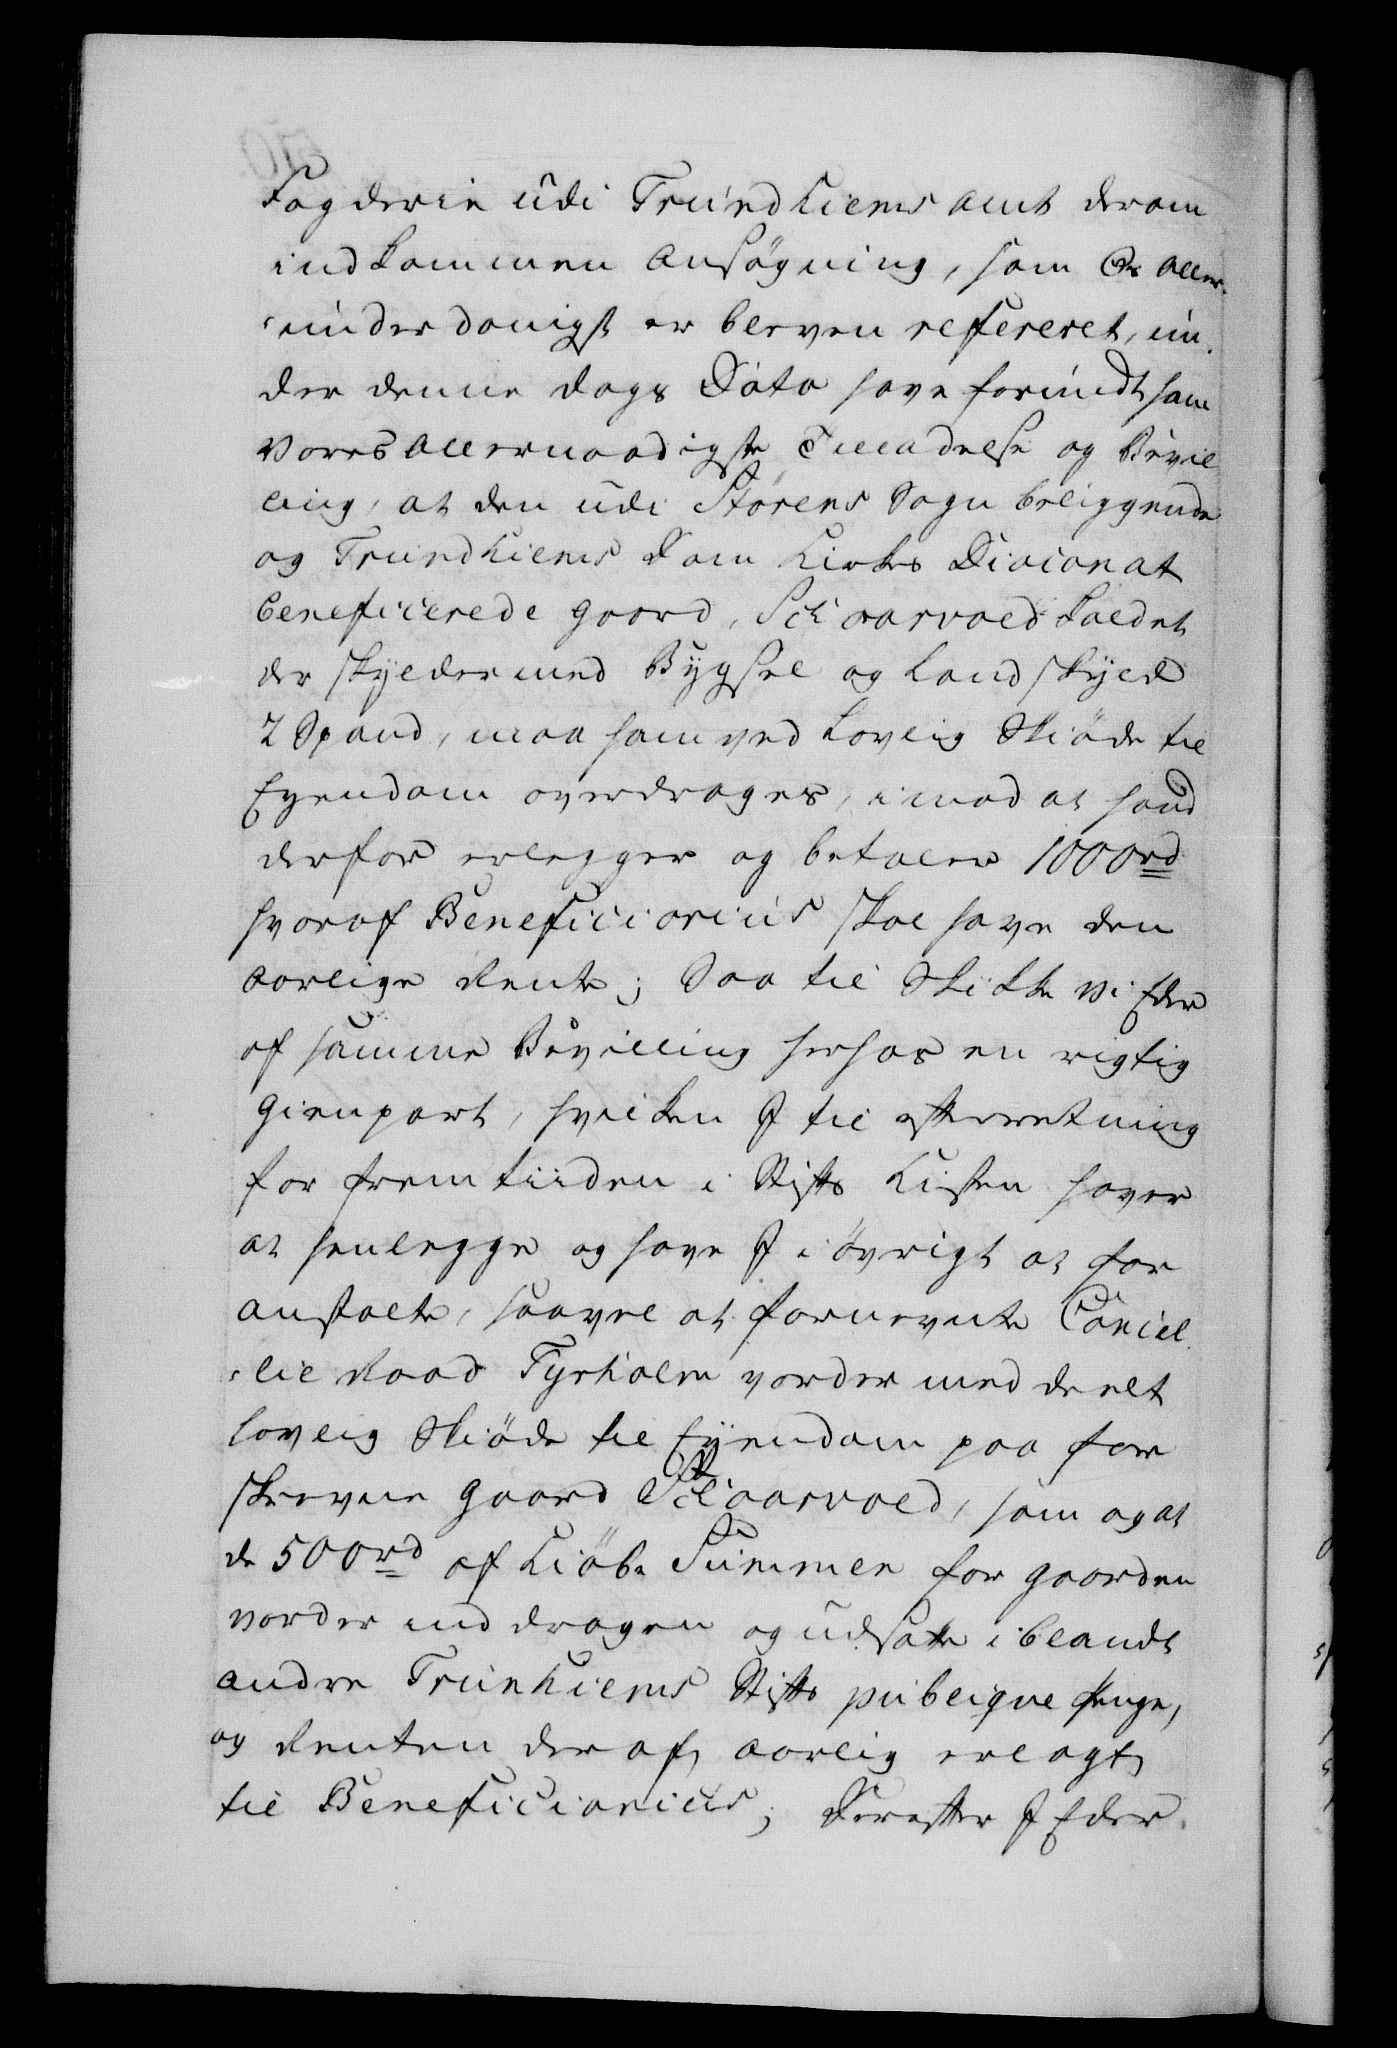 Fogderie udi Trundhiems Amt derom
indkommen Ansøgning, som Os Aller-
underdanigst er bleven refereret, un-
der denne Dags Dato have forundt ham
Vores Allernaadigste Tilladelse og Bevil
ling, at den udi Størens Sogn beliggende
og Trundhiems Dom Kirkes Diaconat
beneficerede Gaard, Schaarvold kaldet
der skylder med Bygsel og Landskyld
2 Spand, maa ham ved lovlig Skiøde til
Eyendom overdrages, imod at hand
derfor erlegger og betaler 1000 rd
hvoraf Beneficiarius skal have den
aarlige Rente; Saa tilskikke Vi Eder
af samme Bevilling herhos en rigtig
Gienpart, hvilken I til efterretning
for fremtiiden i Stifts Kisten haver
at henlegge og have I iøvrigt at for
anstalte, saavel at fornevnte Cancel-
lie Raad Tyrholm vorder meddeelt
lovlig Skiøde til Eyendom paa for
skrevne Gaard Schaarvold, som og at
de 500 rd af Kiøbe Summen for Gaarden
vorder inddragen og udsatte iblandt
andre Trunhiems Stifts publique Penge,
og Renten deraf aarlig erlagt
til Beneficiarius; Derefter I Eder